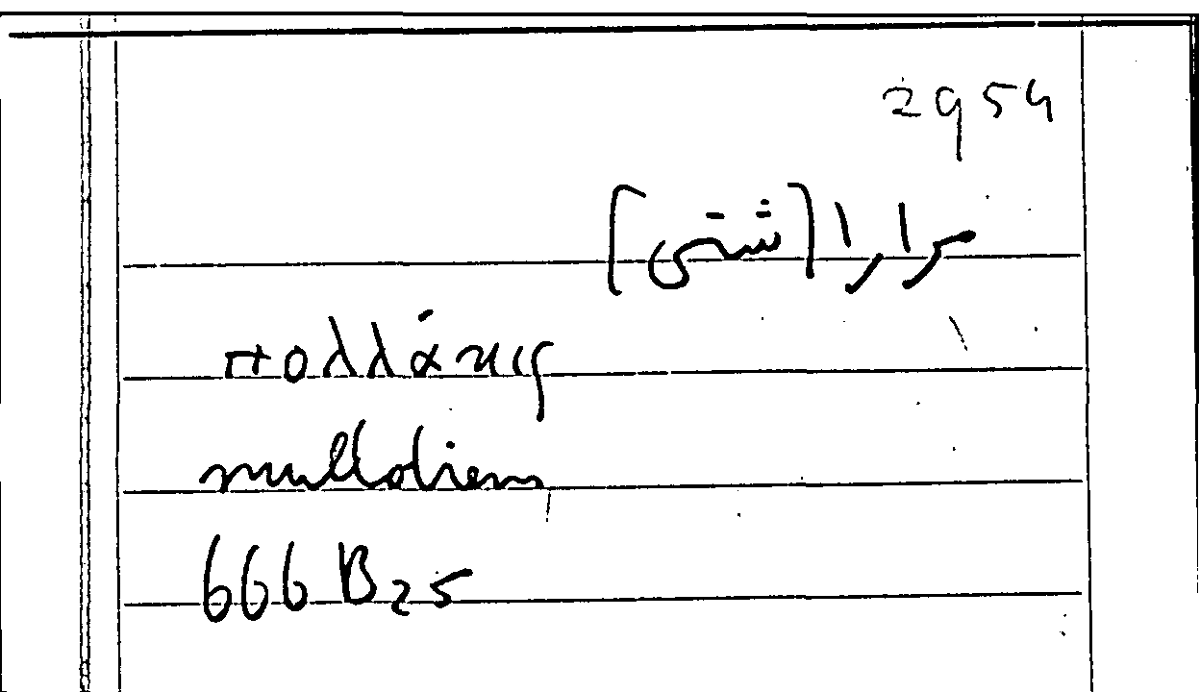 2954
مرارا [شتى]
πολλάκις
multotiens
666 B25